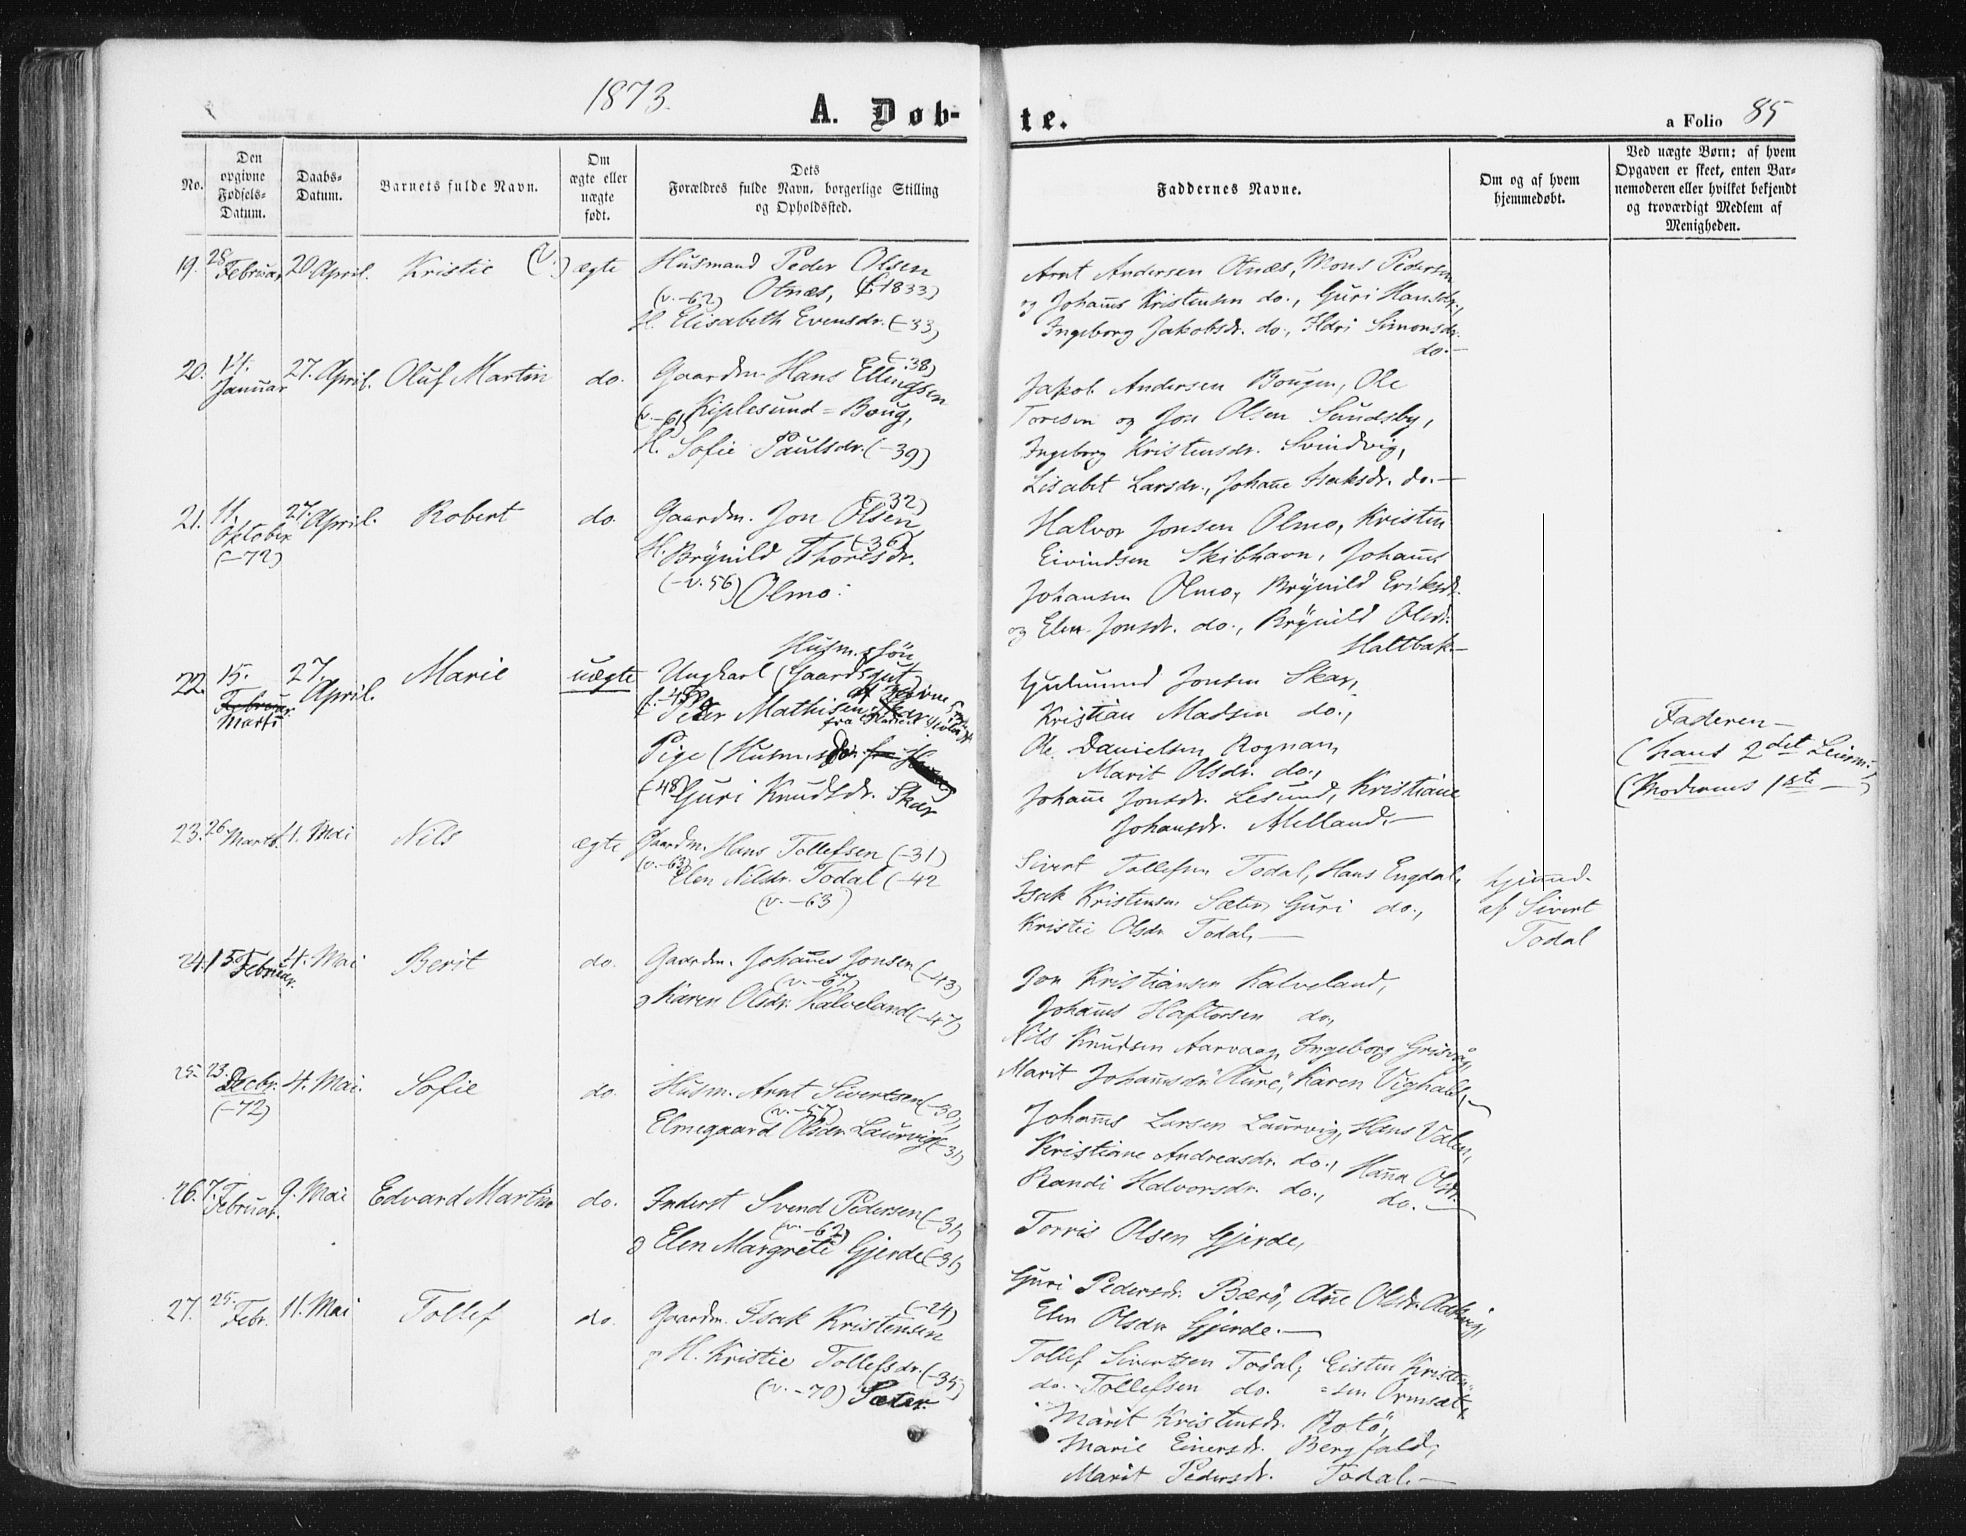 1873.
A. Døb-
te.
a Folio 85
No.
Den opgivne Fødsels-Datum.
Daabs-Datum.
Barnets fulde Navn.
Om ægte eller uægte født.
Dets Forældres fulde Navn, borgerlige Stilling og Opholdssted.
Faddernes Navne.
Om og af hvem hjemmedøbt.
Ved uægte Børn: af hvem Opgaven er skeet, enten Barnemoderen eller hvilket bekjendt og troværdigt Medlem af Menigheden.
19. 28 Februar 20 April. Kristie (v.) ægte Husmand Peder Olsen
(v. -62) Otnæs, (f. 1833)
H. Elisabeth Evensdr. (-33)
Arnt Andersen Otnæs, Mons Pedersen
og Johannes Kristensen do., Guri Hansdr.,
Ingeborg Jakobsdr. do., Ildri Simonsdr.
do.-
20. 14. Januar 27. April. Oluf Martin do. Gaardm. Hans Ellingsen (-38)
(v. -61) Kiplesund-Boug,
H. Sofie Paulsdr. (-39)
Jakob Andersen Bougen, Ole
Toresen og Jon Olsen Sundsby,
Ingeborg Kristensdr. Svindvig,
Lisabet Larsdr., Johanne Isaksdr. do.-
21. 11. Oktober (-72) 27. April. Robert do. Gaardm. Jon Olsen (-32)
H. Brynild Thoresdr. (-36)
(-v. 56) Olmo.
Halvor Jonsen Olmo, Kristen
Eivindsen Skibhavn, Johannes
Johansen Olmo, Brynild Eriksdr.
og Elen Jonsdr. do., Brynild Olsdr.
Haltbak-
22. 15. Februar Marts 27. April. Marie uægte Husm.søn
Ungkarl (Gaardsgut)
(-48) Peder Mathisen
Pige (Husm.s
(-48) Guri Knudtsdr. Skar
Gudmund Jonsen Skar,
Kristian Madsen do.,
Ole Danielsen Rognan,
Marit Olsdr. do.,
Johanne Jonsdr. Lesund, Kristiane
Johansdr. Melland.-
Faderen-
(hans 2det Leierm.)
(Moderens 1ste -)
23. 26 Marts. 1. Mai Nils ægte Gaardm. Hans Tollefsen (-31)
(v. -63) Elen Nilsdr. Todal (-42
(v. -63)
Sivert Tollefsen Todal, Hans Engdal,
Isak Kristensen Sæter, Guri do.,
Kristie Olsdr. Todal.-
hjemmd.
af Sivert
Todal
24. 15. Februar. 4. Mai Berit do. Gaardm. Johannes Jonsen (-43)
(v. -67)
g Karen Olsdr. Kalveland (-47)
Jon Kristiansen Kalveland,
Johannes Haftorsen do,
Nils Knudsen Aarvaag, Ingeborg Grisvåg,
Marit Johannsdr. Aure, Karen Vighals,-
25. 23. Decbr. (-72) 4. Mai. Sofie do. Husm. Arnt Sivertsen (-30)
(v. -57)
Elmegaard Olsdr. Laurvig (-31)
Johannes Larsen Laurvig, Hans Valen,
Kristiane Andreasdr. do., Hanna Olsdr.
Randi Halvorsdr. do., do.-
26. 7. Februar. 9. Mai Edvard Martin do. Inderst Svend Pedersen (-31)
(v. -62)
g Elen Margrete Gjerde (-31)
Torris Olsen Gjerde,
Guri Pedersdr. Bærø, Ane Olsdr.
Elen Olsdr. Gjerde.-
27. 25. Febr. 11. Mai Tollef do. Gaardm. Isak Kristensen (-24)
g H. Kristie Tollefsdr. (-35)
(v. -70) Sæter.
Tollef Sivertsen Todal, Eisten Kristen
do.- Tollefsen do. =sen Ormsæt,
Marit Kristensdr. Rotø,
Marie Einersdr. Bergfald,
Marit Pedersdr. Todal.-